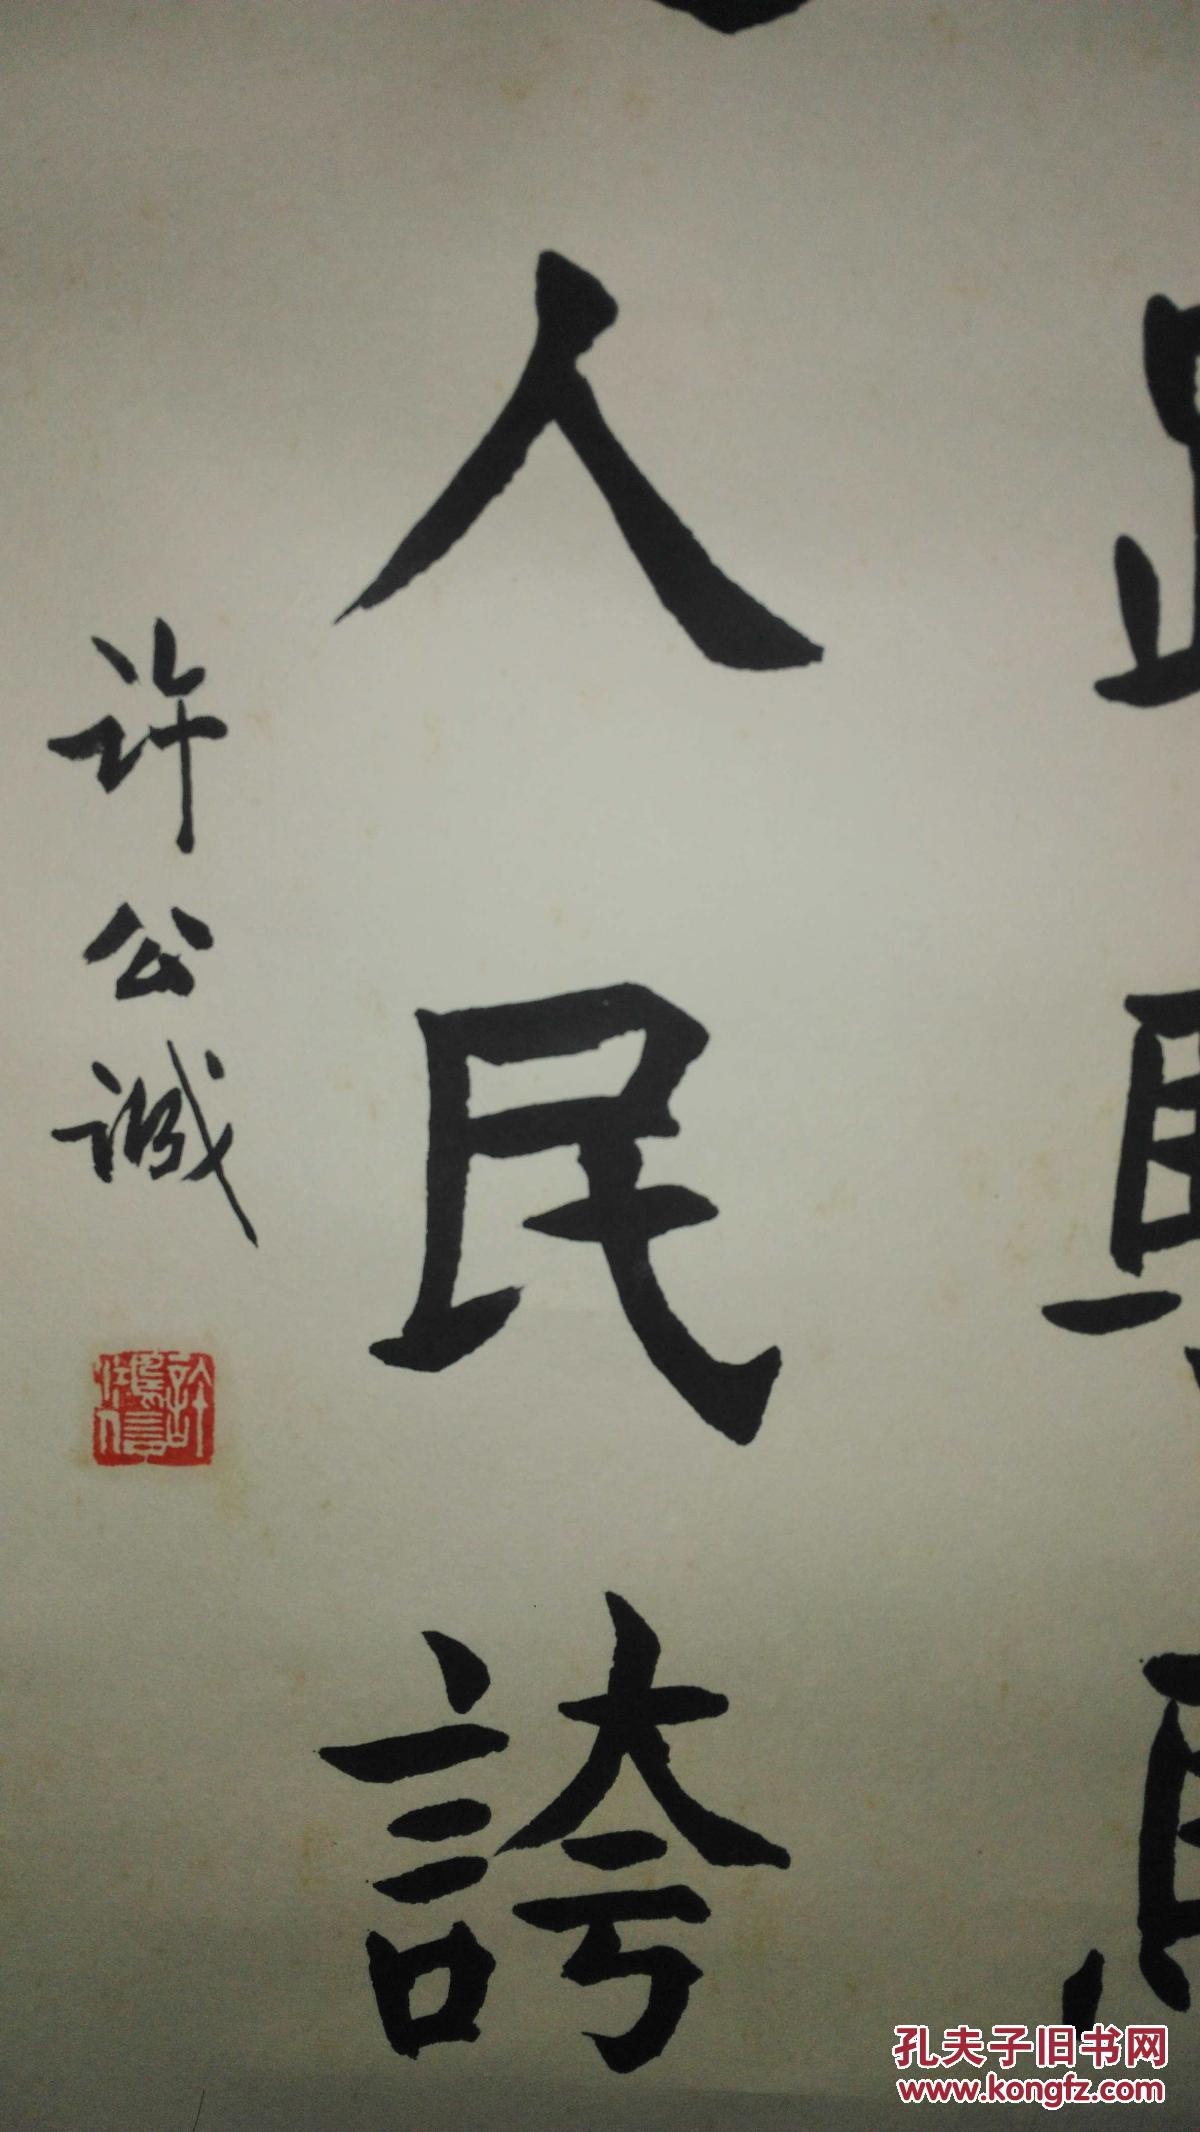 人民誇
许公诚
許鴻信
孔夫子旧书网
www.kongfz.com